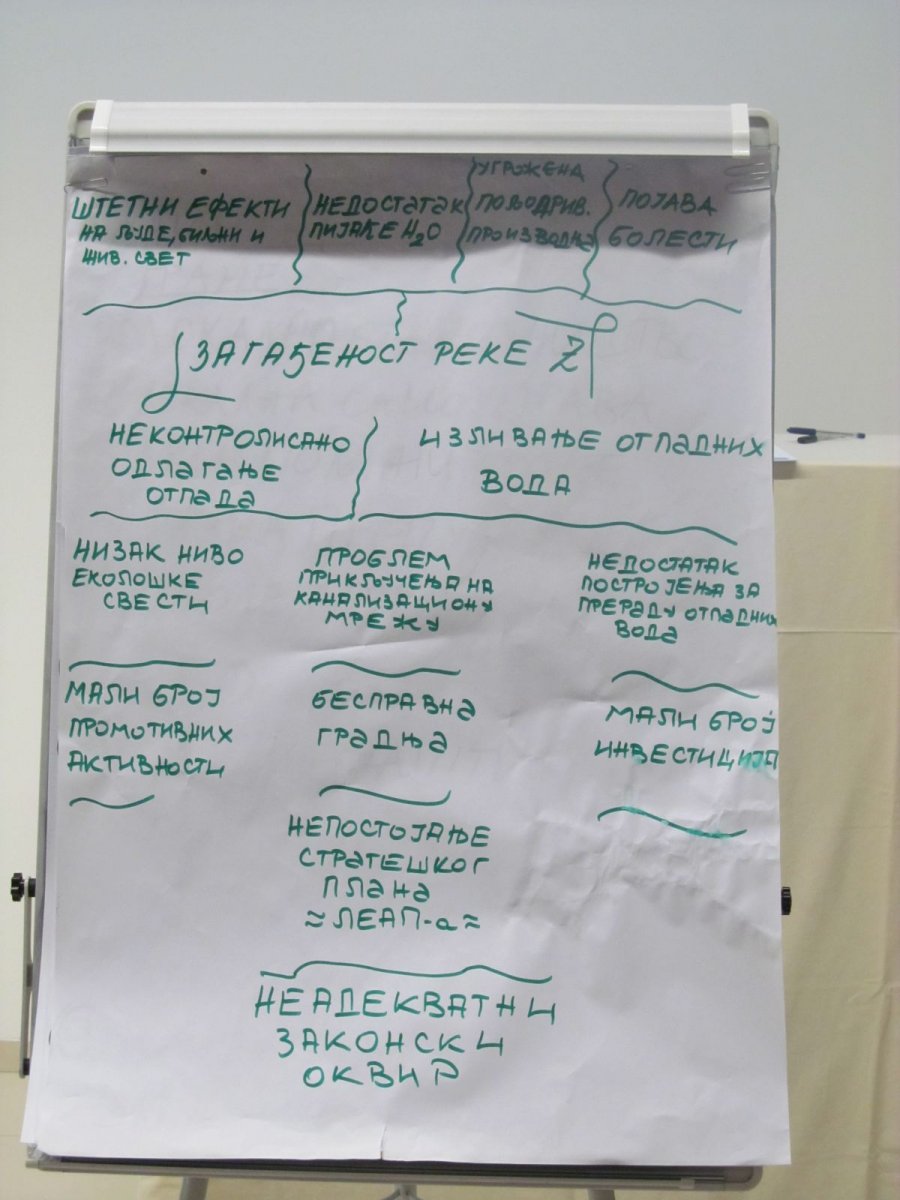 ШТЕТНИ ЕФЕКТИ
НА ЉУДЕ, БИЉНИ И
ЖИВ. СВЕТ
НЕДОСТАТАК
ПИЈАЋЕ H₂O
УГРОЖЕНА
ПОЉОПРИВ.
ПРОИЗВОДЊА
ПОЈАВА
БОЛЕСТИ
ЗАГАЂЕНОСТ РЕКЕ Z
НЕКОНТРОЛИСАНО
ОДЛАГАЊЕ
ОТПАДА
ИЗЛИВАЊЕ ОТПАДНИХ
ВОДА
НИЗАК НИВО
ЕКОЛОШКЕ
СВЕСТИ
ПРОБЛЕМ
ПРИКЉУЧЕЊА НА
КАНАЛИЗАЦИОНУ
МРЕЖУ
НЕДОСТАТАК
ПОСТРОЈЕЊА ЗА
ПРЕРАДУ ОТПАДНИХ
ВОДА
МАЛИ БРОЈ
ПРОМОТИВНИХ
АКТИВНОСТИ
БЕСПРАВНА
ГРАДЊА
МАЛИ БРОЈ
ИНВЕСТИЦИЈА
НЕПОСТОЈАЊЕ
СТРАТЕШКОГ
ПЛАНА
≈ ЛЕАП-а ≈
НЕАДЕКВАТНИ
ЗАКОНСКИ
ОКВИР